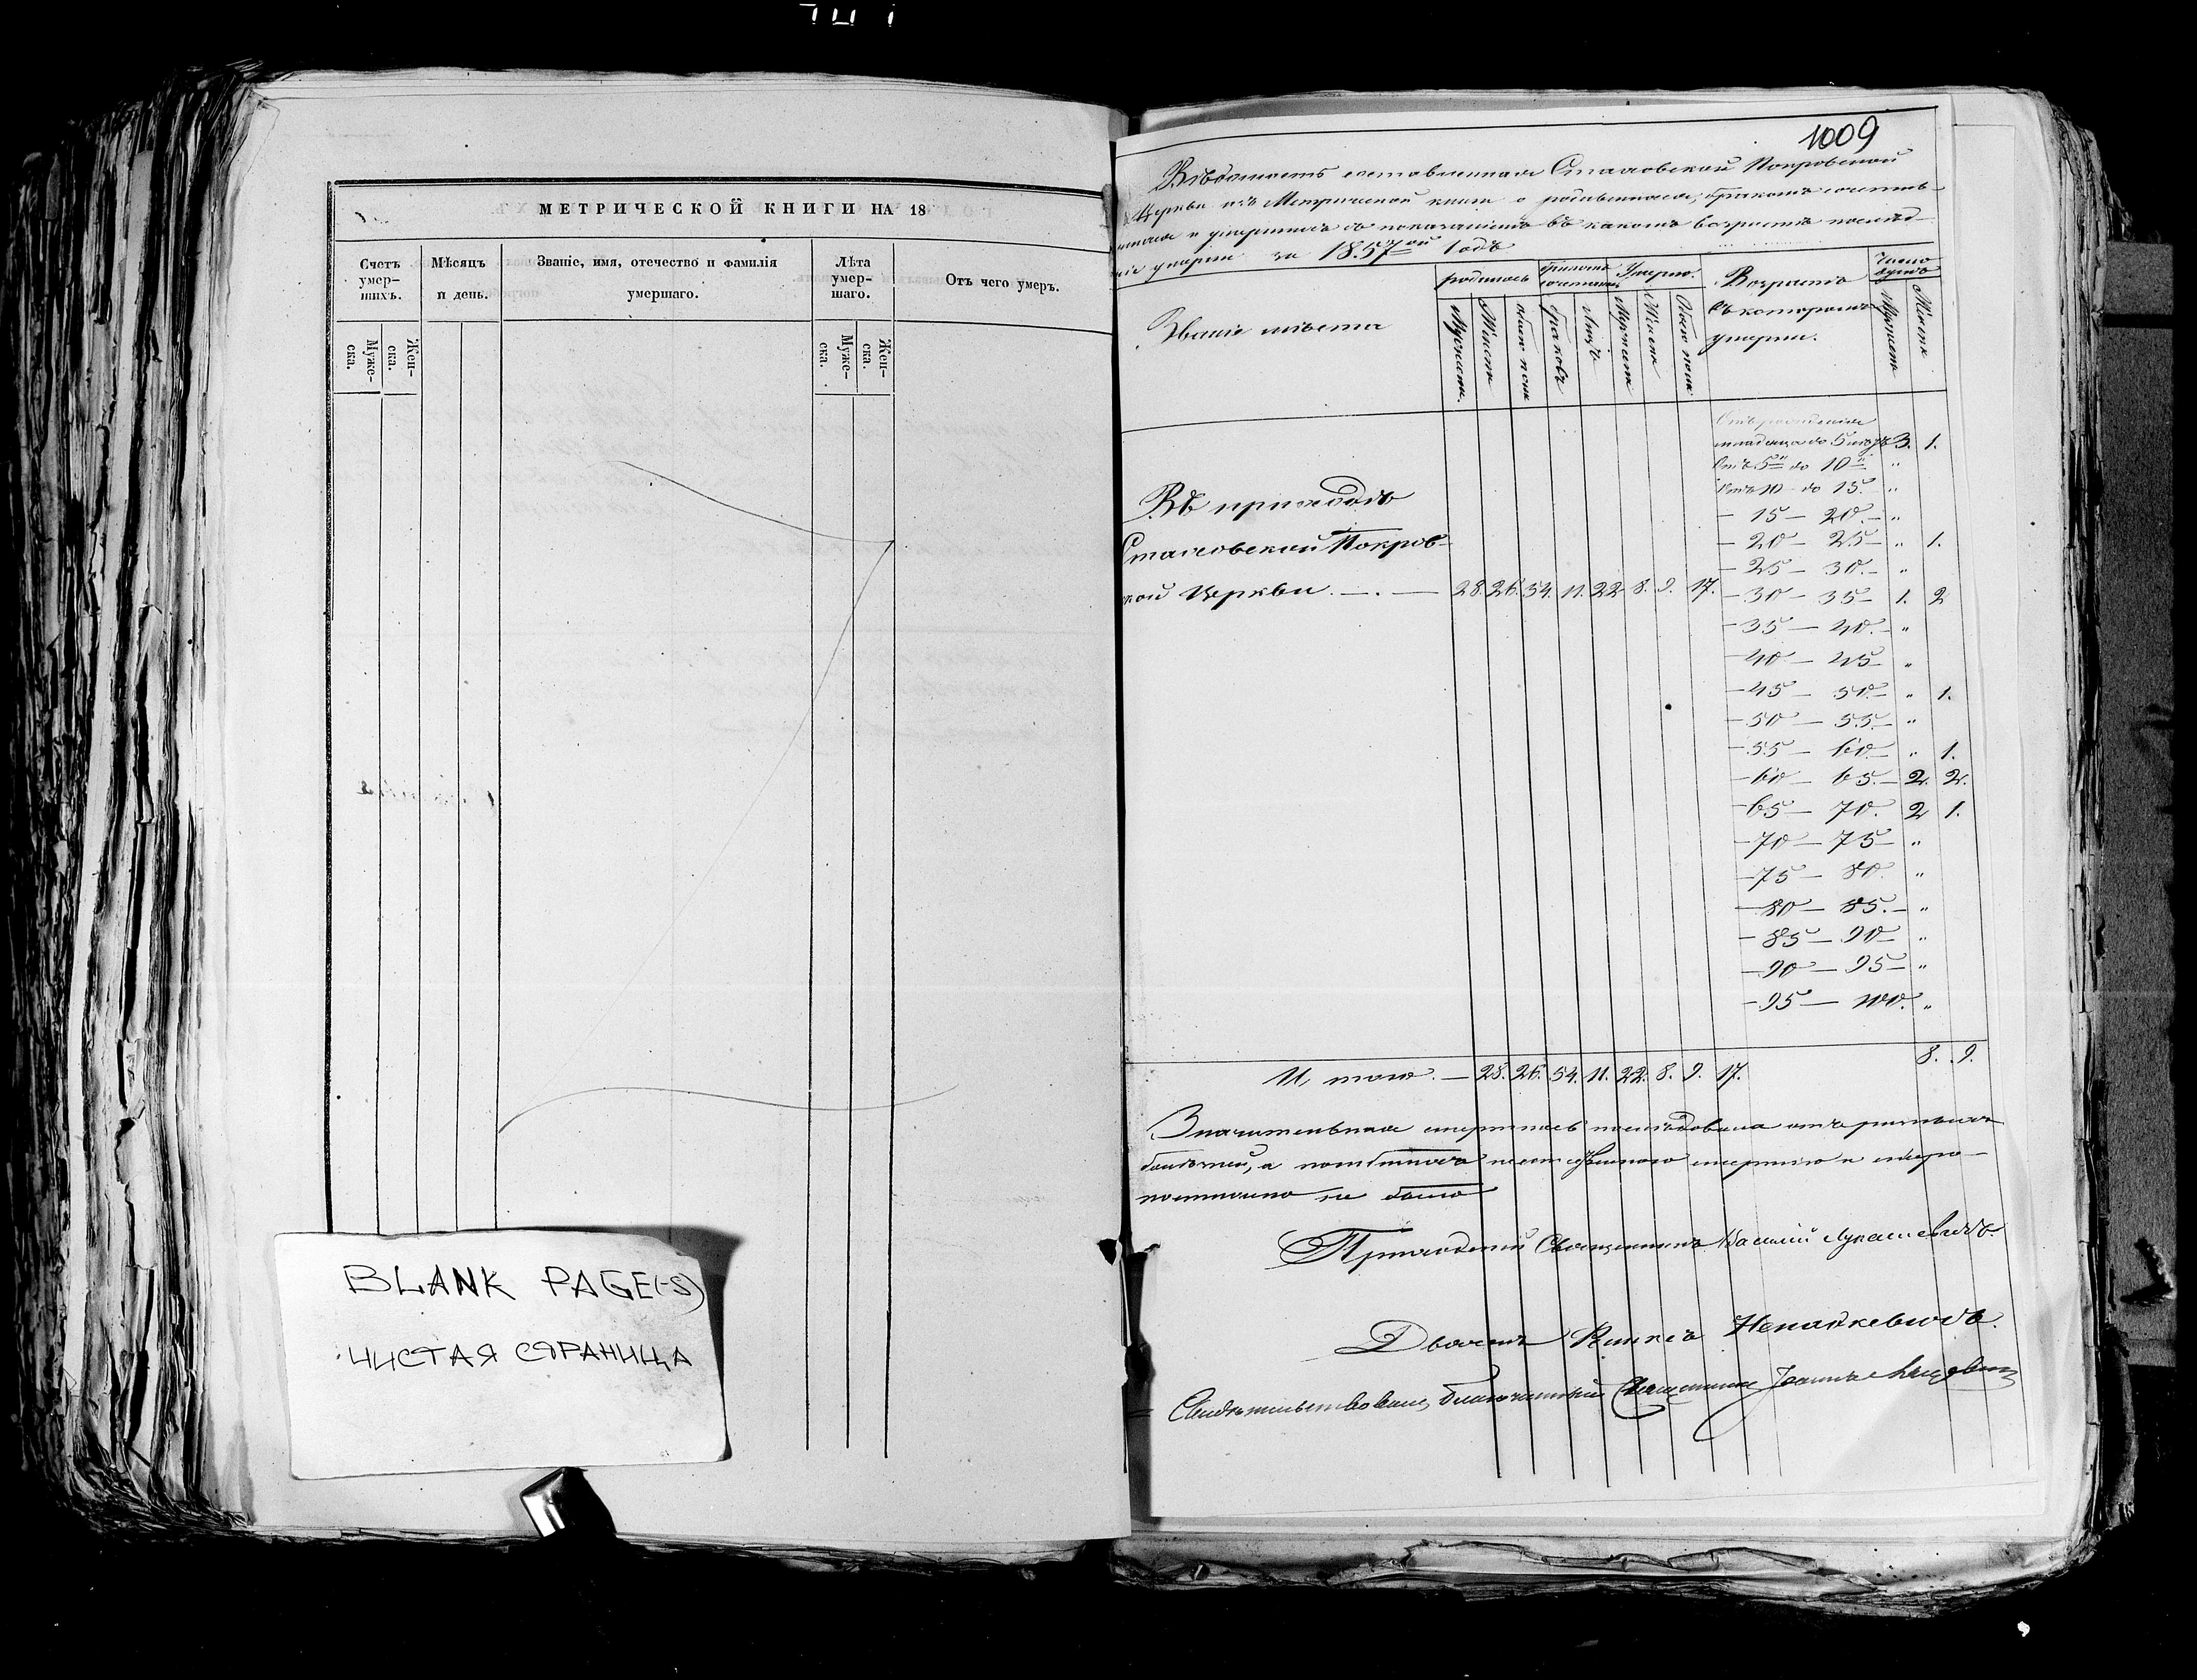 МЕТРИЧЕСКОЙ КНИГИ НА 18
Счетъ умерших. Мѣсяцъ и день. Званіе, имя, отечество и фамилія умершаго. Лѣта умершаго. Отъ чего умеръ.
Мужеска. Женска. Мужеска. Женска.
BLANK PAGE(-S)
ЧИСТАЯ СТРАНИЦА
1009
Вѣдомость составленная Сталовской Покровской
Церкви изъ Метрической книги о родившихся, бракомъ сочетав-
шихся и умершихъ съ показаніемъ въ какомъ возрастѣ послѣд-
ніе умерли за 1857ой Годъ
Званіе мѣста
родилось бракомъ сочетались Умерло. Возрастъ въ которомъ умерли. Число душъ
Мужеска. Женска обоего пола браковъ лицъ Мужеска Женска Обоего пола Мужеска Женска
Отъ рожденія
младенца до 5 лѣтъ 3. 1.
Отъ 5 до 10 "
Отъ 10 до 15 "
Въ приходѣ
— 15 — 20. — "
Сталовской Покров-
— 20 — 25 — " 1.
— 25 — 30. — "
ской Церкви. — . — 28. 26. 54. 11. 22. 8. 9. 17.
— 30 — 35 1. 2
— 35 — 40. — "
— 40 — 45 "
— 45 — 50 — " 1.
— 50 — 55. — "
— 55 — 60 — " 1.
— 60 — 65. — 2. 2.
— 65 — 70. 2 1.
— 70 — 75 — "
— 75 — 80. "
— 80 — 85. — "
— 85 — 90 — "
— 90 — 95 — "
— 95 — 100. "
8. 9.
И того. — 28. 26. 54. 11. 22. 8. 9. 17.
Значительная смертность послѣдовала отъ разныхъ
болѣзней, а погибшихъ неестественною смертію и скоро-
постижно не было
Приходскій Священникъ Василій Лукашевичъ.
Дьячекъ Ненадкевичъ.
Свидѣтельствовалъ, благочинный Священникъ Іоаннъ